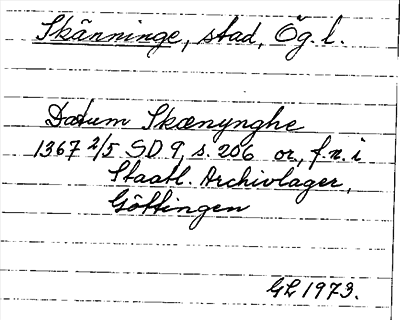 Skänninge, stad, Ög. l.
Datum Skænynghe
1367 2/5 SD 9, s. 206 or., f.n. i
Staatl. Archivlager,
Göttingen
GL 1973.